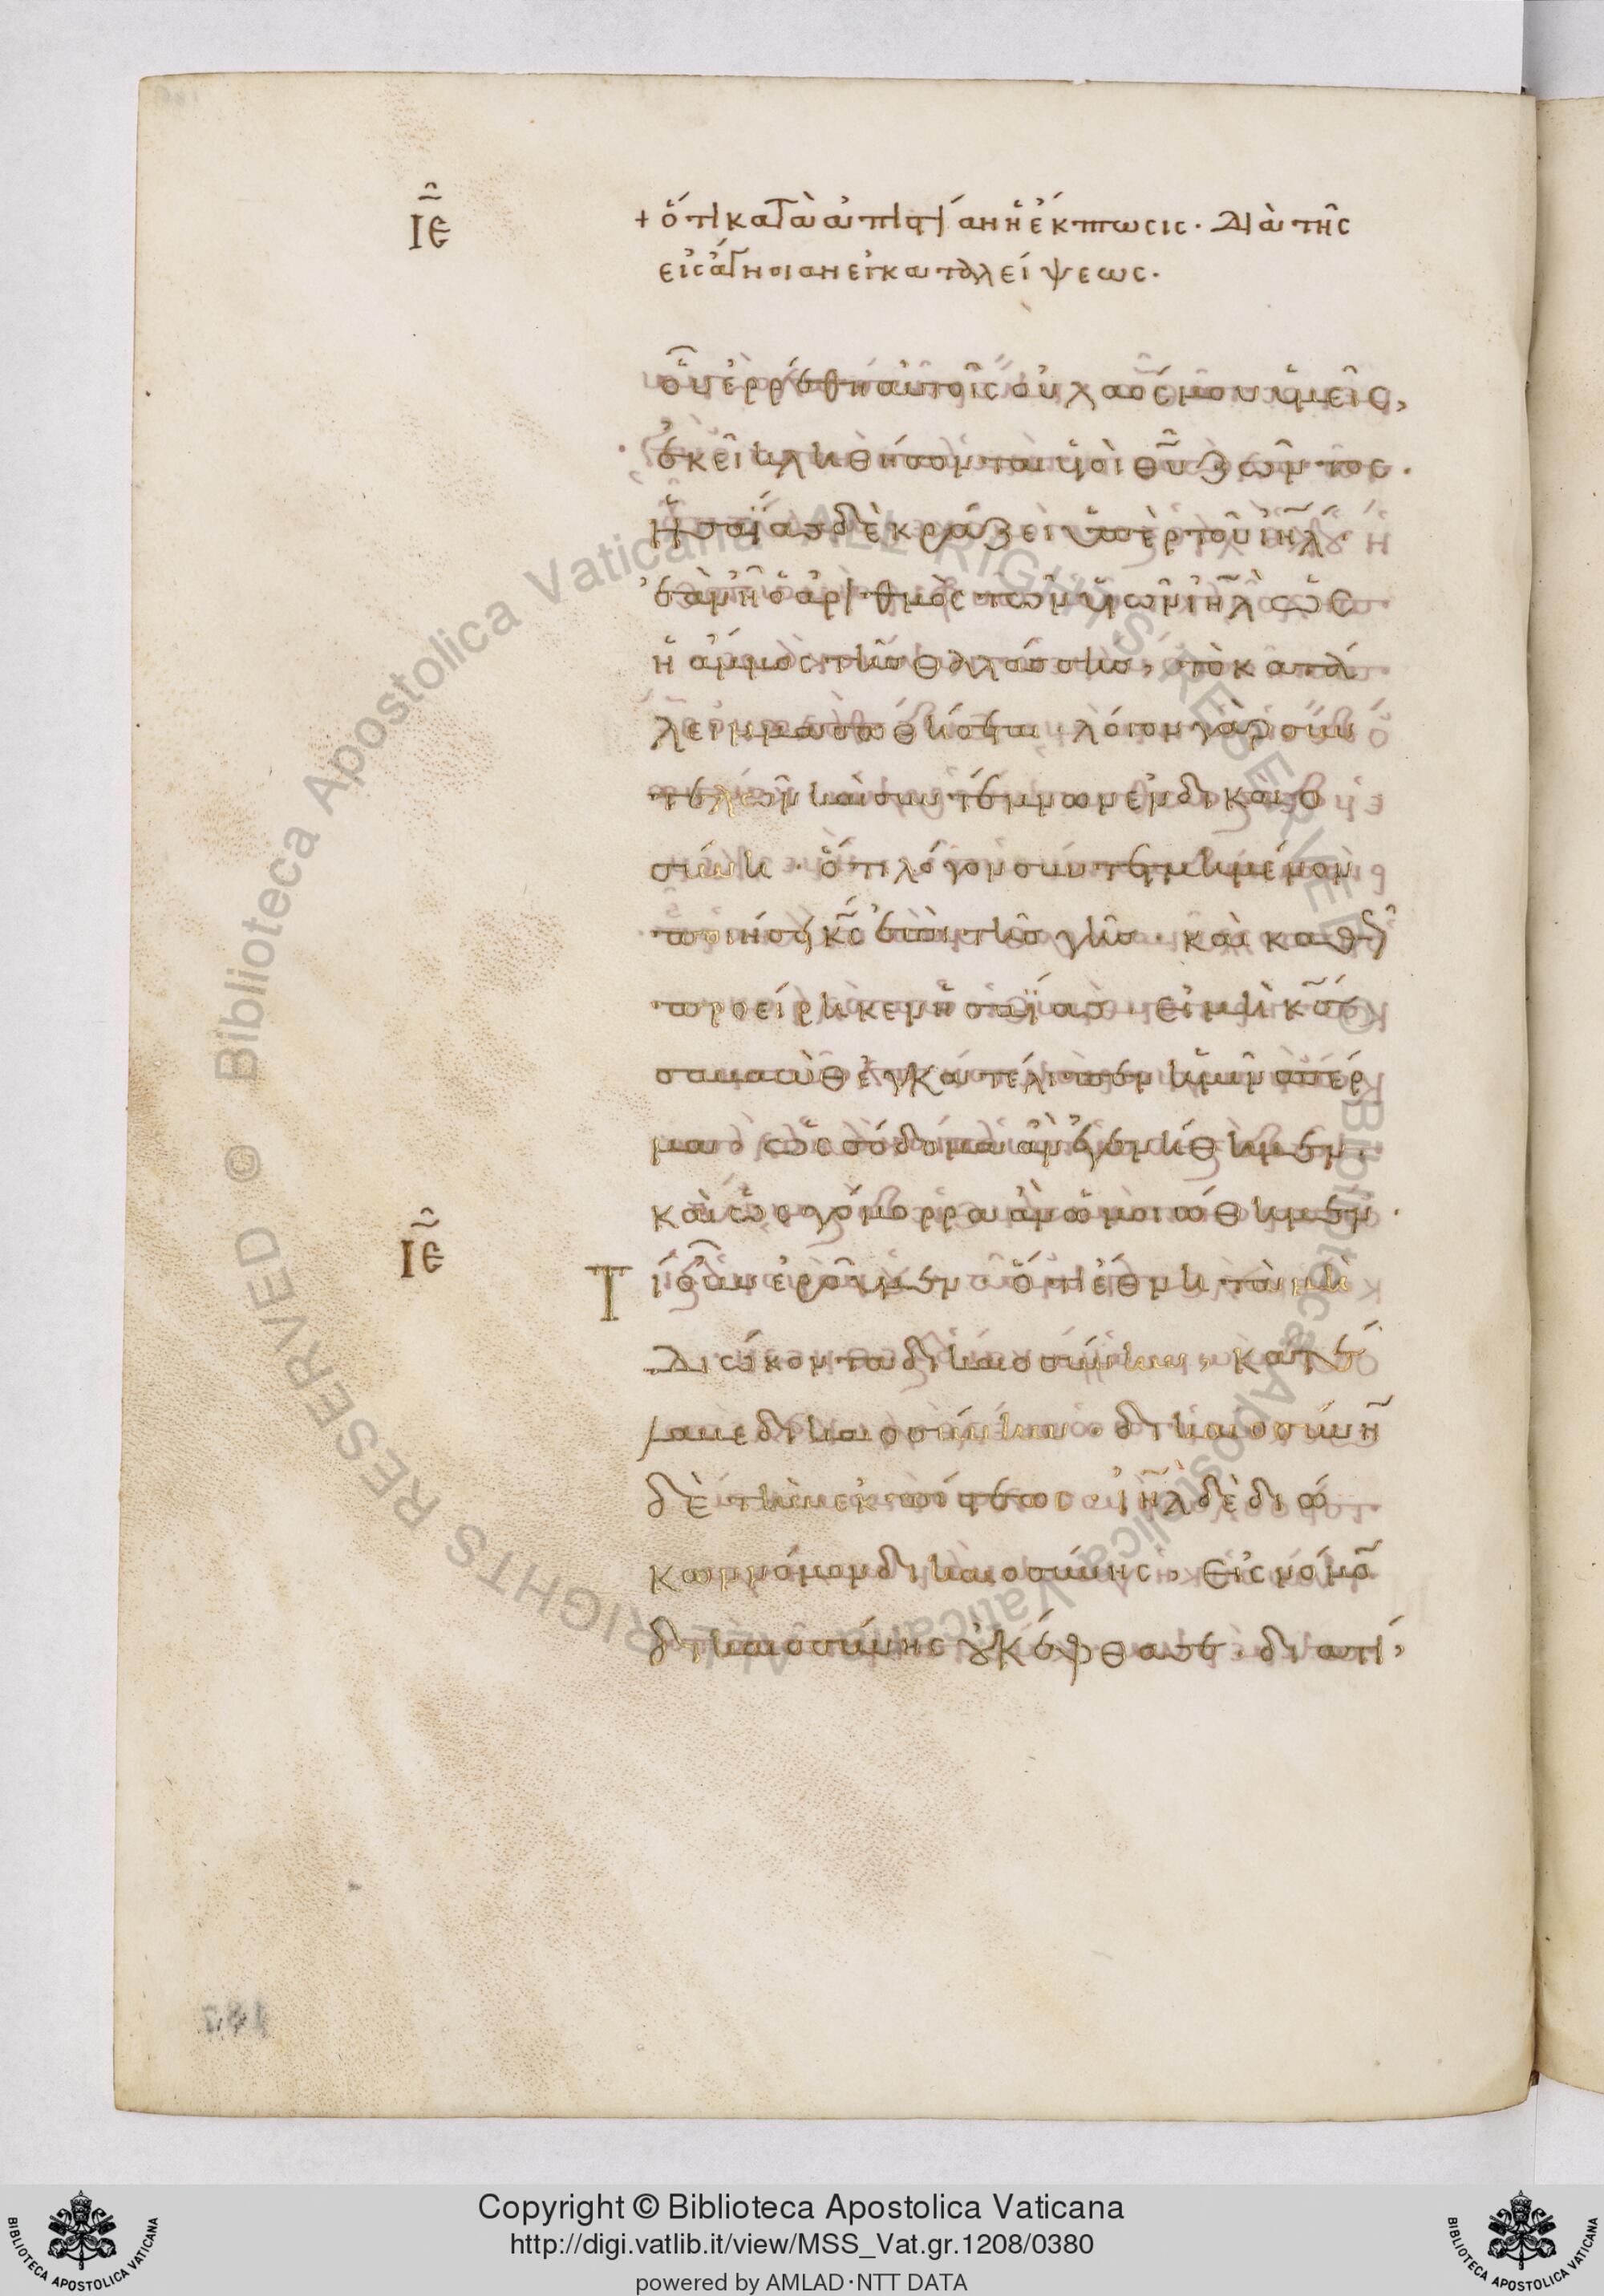 ΙΕ
+ ὅτι κατὰ ἀπιστίαν ἡ ἔκπτωσις· διὰ τῆς
εἰς ἄγνοιαν ἐγκαταλείψεως·
οὗ ἐρρέθη αὐτοῖς οὐ λαός μου ὑμεῖς,
ἐκεῖ κληθήσονται υἱοὶ θῦ ζῶντος·
Ἡσαΐας δὲ κράζει ὑπὲρ τοῦ ιηλ·
ἐὰν ἦ ὁ ἀριθμὸς τῶν υἱῶν ιηλ ὡς
ἡ ἄμμος τῆς θαλάσσης, τὸ κατά
λειμμα σωθήσεται· λόγον γὰρ συν
τελῶν καὶ συντέμνων ἐν δικαιο
σύνη· ὅτι λόγον συντετμημένον
ποιήσει κς ἐπὶ τῆς γῆς· καὶ καθὼ
προείρηκεν ἡσαΐας· εἰ μὴ κς
σαβαὼθ ἐγκατέλιπεν ἡμῖν σπέρ
μα, ὡς σόδομα ἂν ἐγενήθημεν·
καὶ ὡς γόμορρα ἂν ὡμοιώθημεν·
ΙΕ
Τί οὖν ἐροῦμεν ὅτι ἔθνη τὰ μὴ
διώκοντα δικαιοσύνην, κατέ
λαβε δικαιοσύνην· δικαιοσύνη
δὲ τὴν ἐκ πίστεως· ιηλ δὲ διώ
κων νόμον δικαιοσύνης, εἰς νόμο
δικαιοσύνης οὐκ ἔφθασε· διατί,
Copyright © Biblioteca Apostolica Vaticana
http://digi.vatlib.it/view/MSS_Vat.gr.1208/0380
powered by AMLAD·NTT DATA
BIBLIOTECA APOSTOLICA VATICANA
BIBLIOTECA APOSTOLICA VATICANA